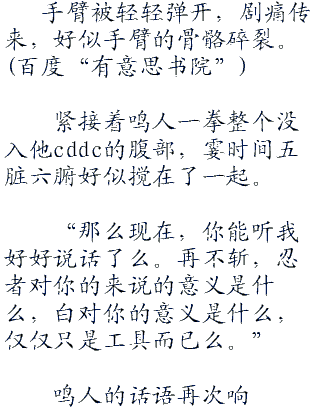 手臂被轻轻弹开，剧痛传
来，好似手臂的骨骼碎裂。
(百度“有意思书院”)
紧接着鸣人一拳整个没
入他cddc的腹部，霎时间五
脏六腑好似搅在了一起。
“那么现在，你能听我
好好说话了么。再不斩，忍
者对你的来说的意义是什
么，白对你的意义是什么，
仅仅只是工具而已么。”
鸣人的话语再次响